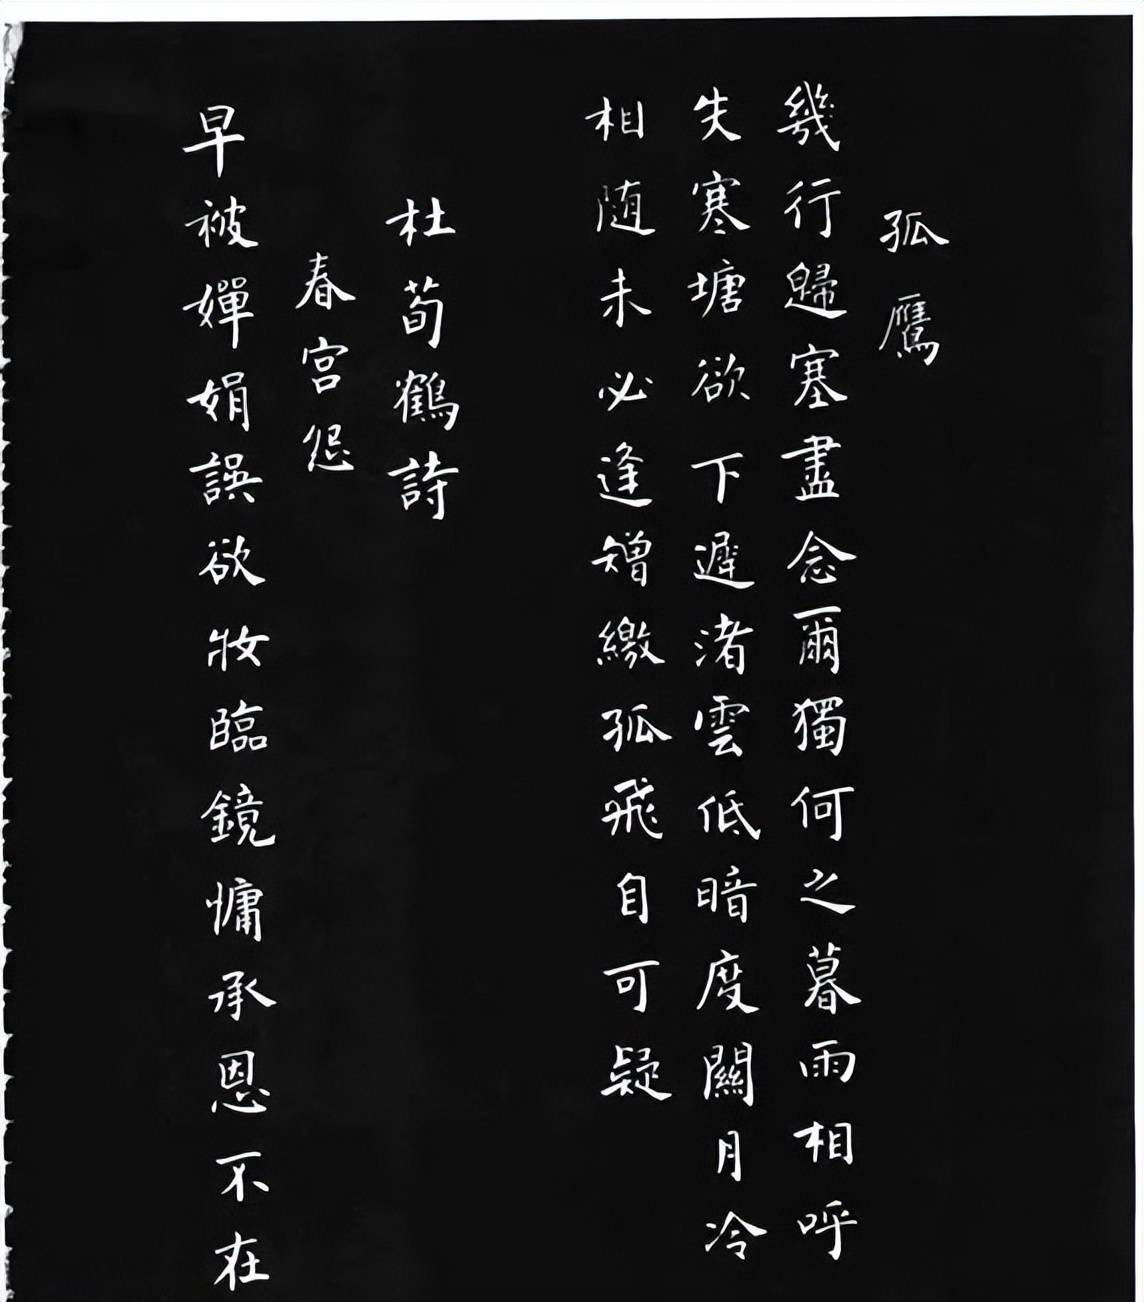 孤鴈
幾行歸塞盡念爾獨何之暮雨相呼
失寒塘欲下遲渚雲低暗度關月冷
相随未必逢矰繳孤飛自可疑
杜荀鶴詩
春宮怨
早被嬋娟誤欲妝臨鏡慵承恩不在